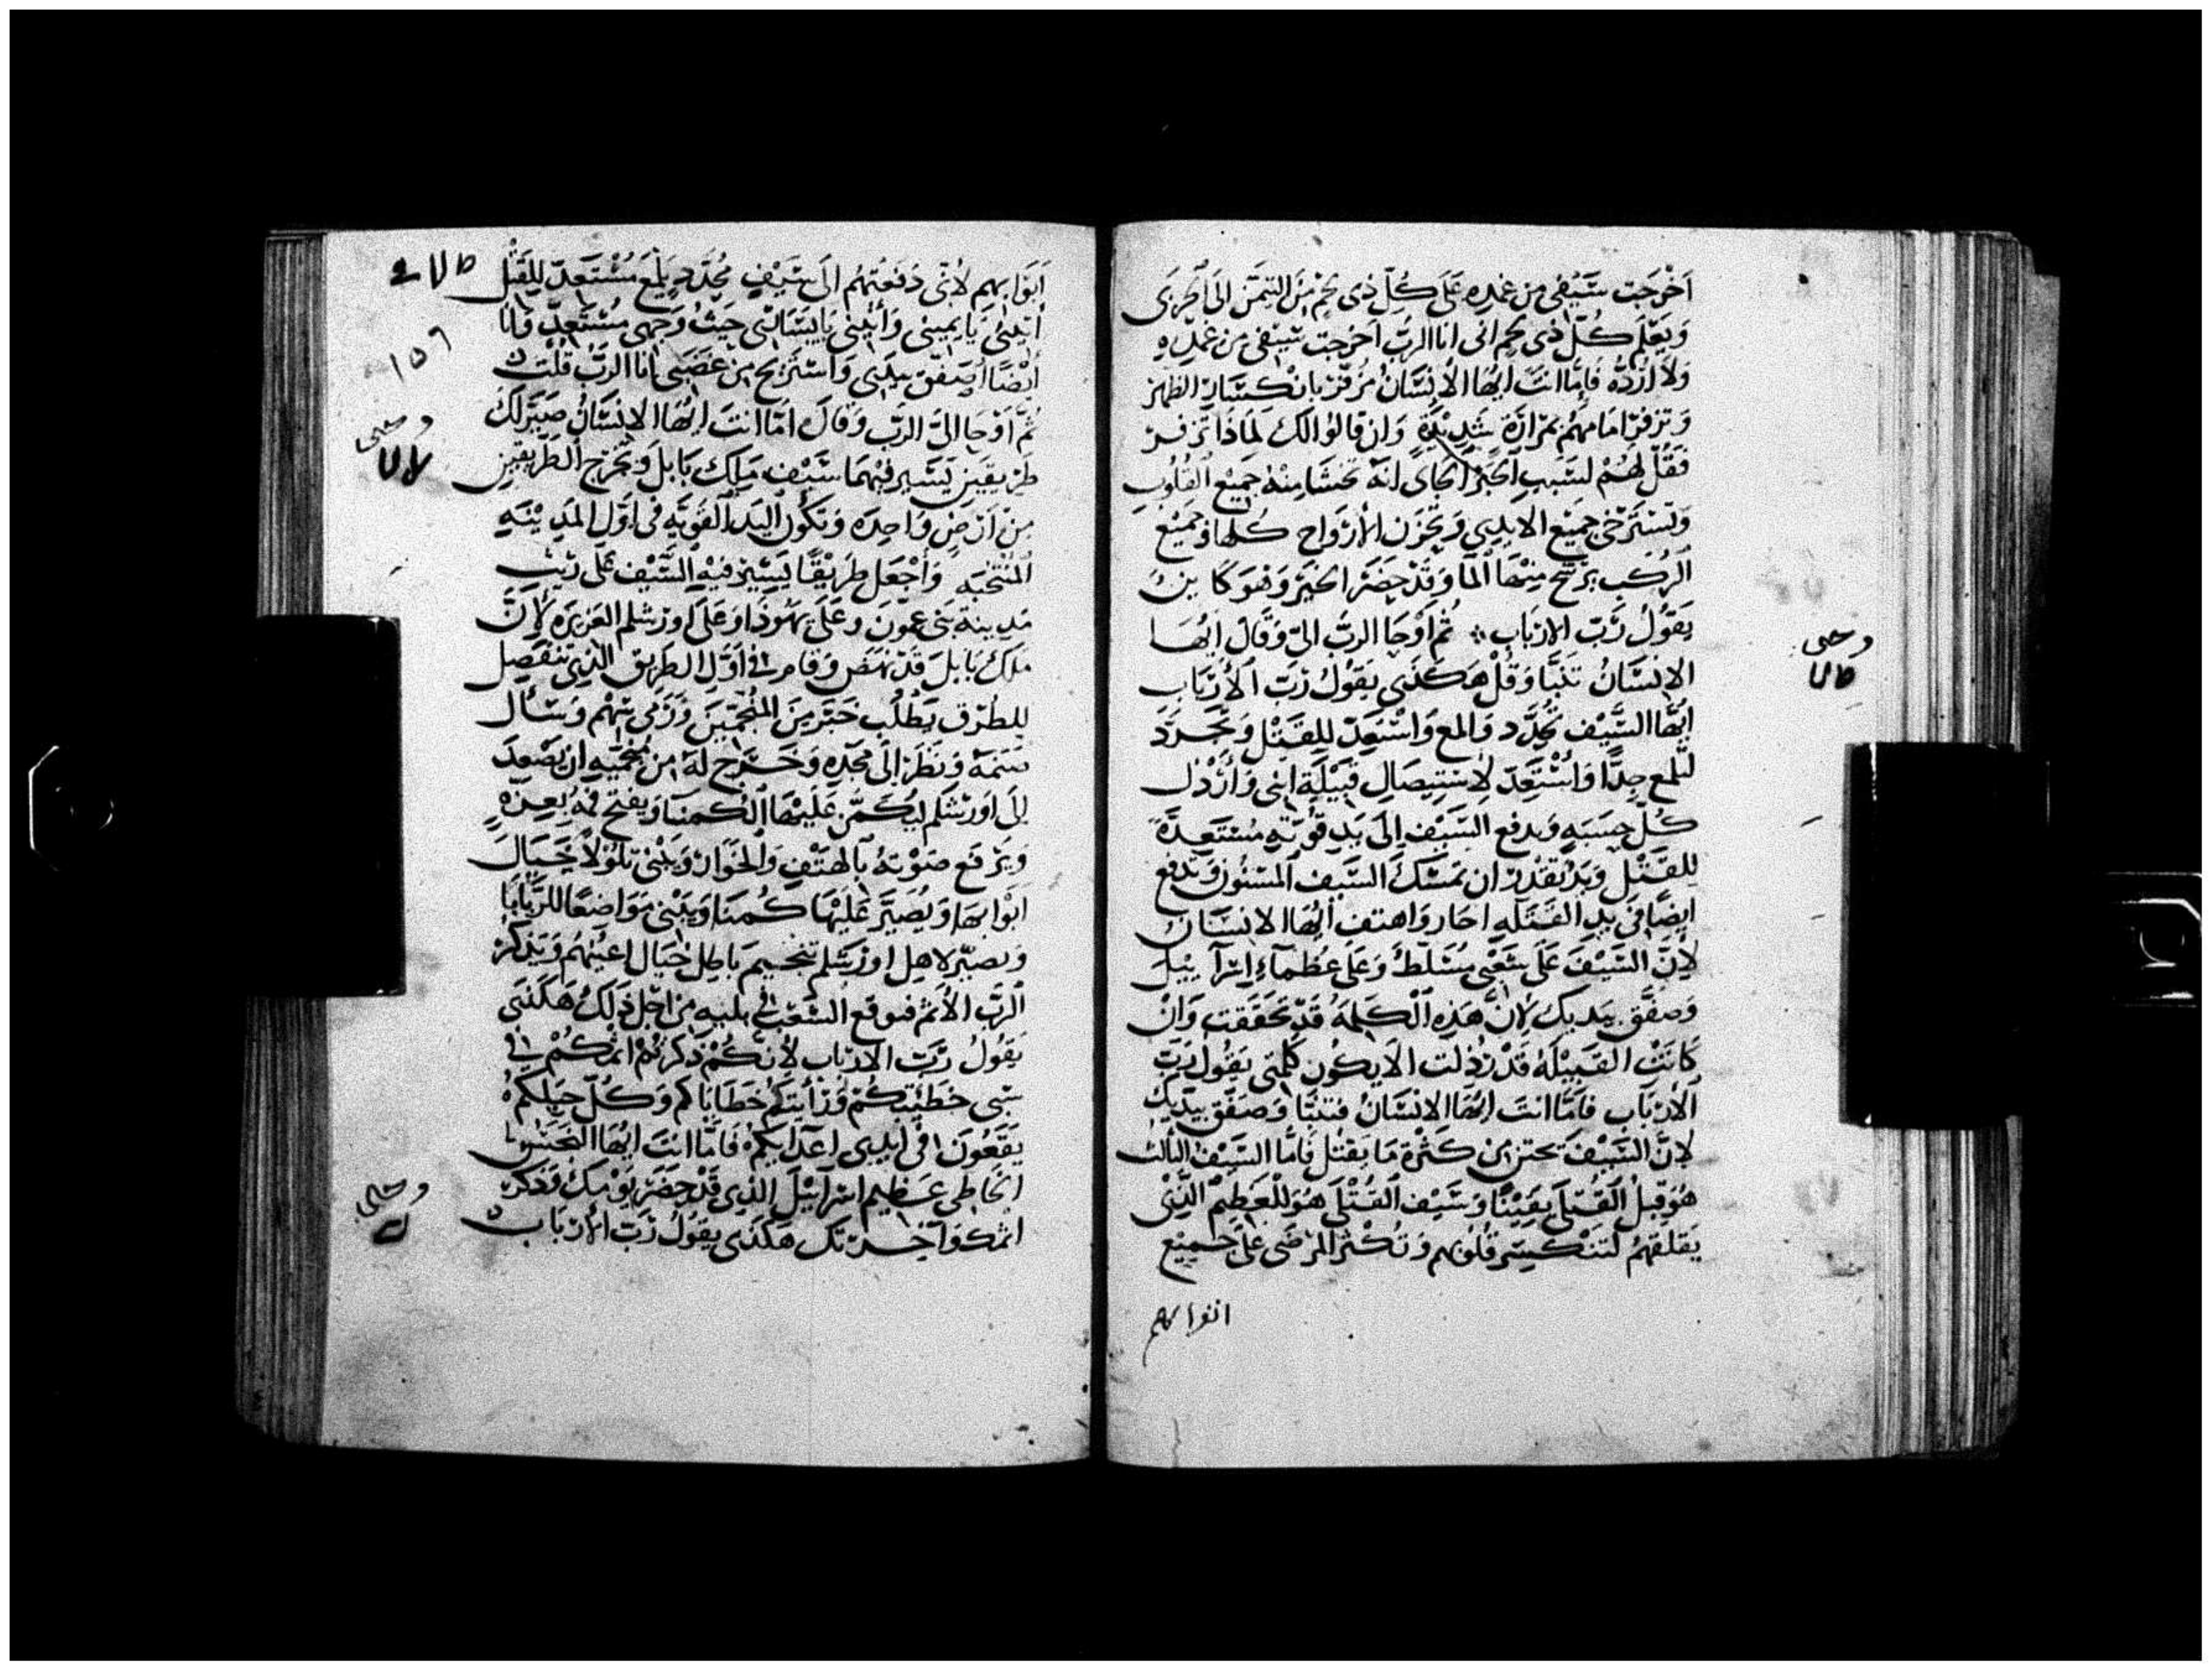 اخرجت سيفي من غمده على كل ذي لحم من التيمن الى الجربى
ويعلم كل ذي لحم اني انا الرب اخرجت سيفي من غمده
ولا ارده فاما انت ايها الانسان فزفر بانكسار الظهر
وتزفر امامهم بمرارة شديدة وان قالوا لك لماذا تزفر
فقل لهم لسبب الخبر الجاي انه تخشا منه جميع القلوب
وتسترخى جميع الايدي وتحزن الارواح كلها وجميع
الركب يرشح منها الما وقد حضر الخبر وهو كاين
يقول رب الارباب ثم اوحا الرب الي وقال ايها
الانسان تنبا وقل هكذى يقول رب الارباب
ايها السيف تحدد والمع واستعد للقتل وتجرد
لتلمع جدا واستعد لاستيصال قبيلة ابني وارذل
كل خشبه ويدفع السيف الى يد قويه مستعدة
للقتل ويد تقدر ان تمسك السيف المسنون وتدفع
ايضا في يد القتله احار واهتف ايها الانسان
لان السيف على شعبي مسلط وعلى عظماء اسراييل
وصفق بيديك لان هذه الكلمة قد تحققت وان
كانت القبيلة قد رذلت الا يكون كلمتي يقول رب
الارباب فاما انت ايها الانسان فتنبا وصفق بيديك
لان السيف من كثرة ما يقتل فاما السيف الثالث
هو قبل القتلى يقينا وسيف القتلى هو للعظم الذي
يقلقهم لتنكسر قلوبهم وتكثر المرضى على جميع
ابوابهم
ابوابهم لاني دفعتهم الى سيف محدد يلمع مستعد للقتل
يا يميني يا يساري حيث وجهي مستعد وانا
ايضا اصفق بيدي واستريح من غضبي انا الرب قلت
ثم اوحا الي الرب وقال اما انت ايها الانسان صير لك
طريقين ليسير فيهما سيف ملك بابل وتخرج الطريقين
من ارض واحده وتكون اليد القويه في اول المدينه
المنتخبه واجعل طريقا يسير فيه السيف على
مدينة بني عمون وعلى يهوذا وعلى اورشلم العزيزه لان
ملك بابل قد نهض وقام في اول الطريق الذي تنفصل
للطرق يطلب خبر من المنجمين ورمى سهم وسال
صنمه ونظر الى مجده وخرج له من منجميه ان يصعد
الى اورشلم ليكمن عليها الكمنا ويفتح فمه
ويرفع صوته بالهتف والخوار ويبني تلولا بحيال
ابوابها ويصير عليها كمنا ويبني مواضعا للدبابا
ويصير لاهل اورشلم تنجيم باطل حيال اعينهم ويذكر
الرب الاثم فيوقع الشعب في بليه من اجل ذلك هكذى
يقول رب الارباب لانكم ذكرتم اثمكم في
سبي خطيتكم خطاياكم وكل حيلكم
يقعون في ايدي اعدايكم فاما انت ايها النجس
الخاطي عظيم اسراييل الذي قد حضر يومك وذكر
اثمك واخرتك هكذى يقول رب الارباب